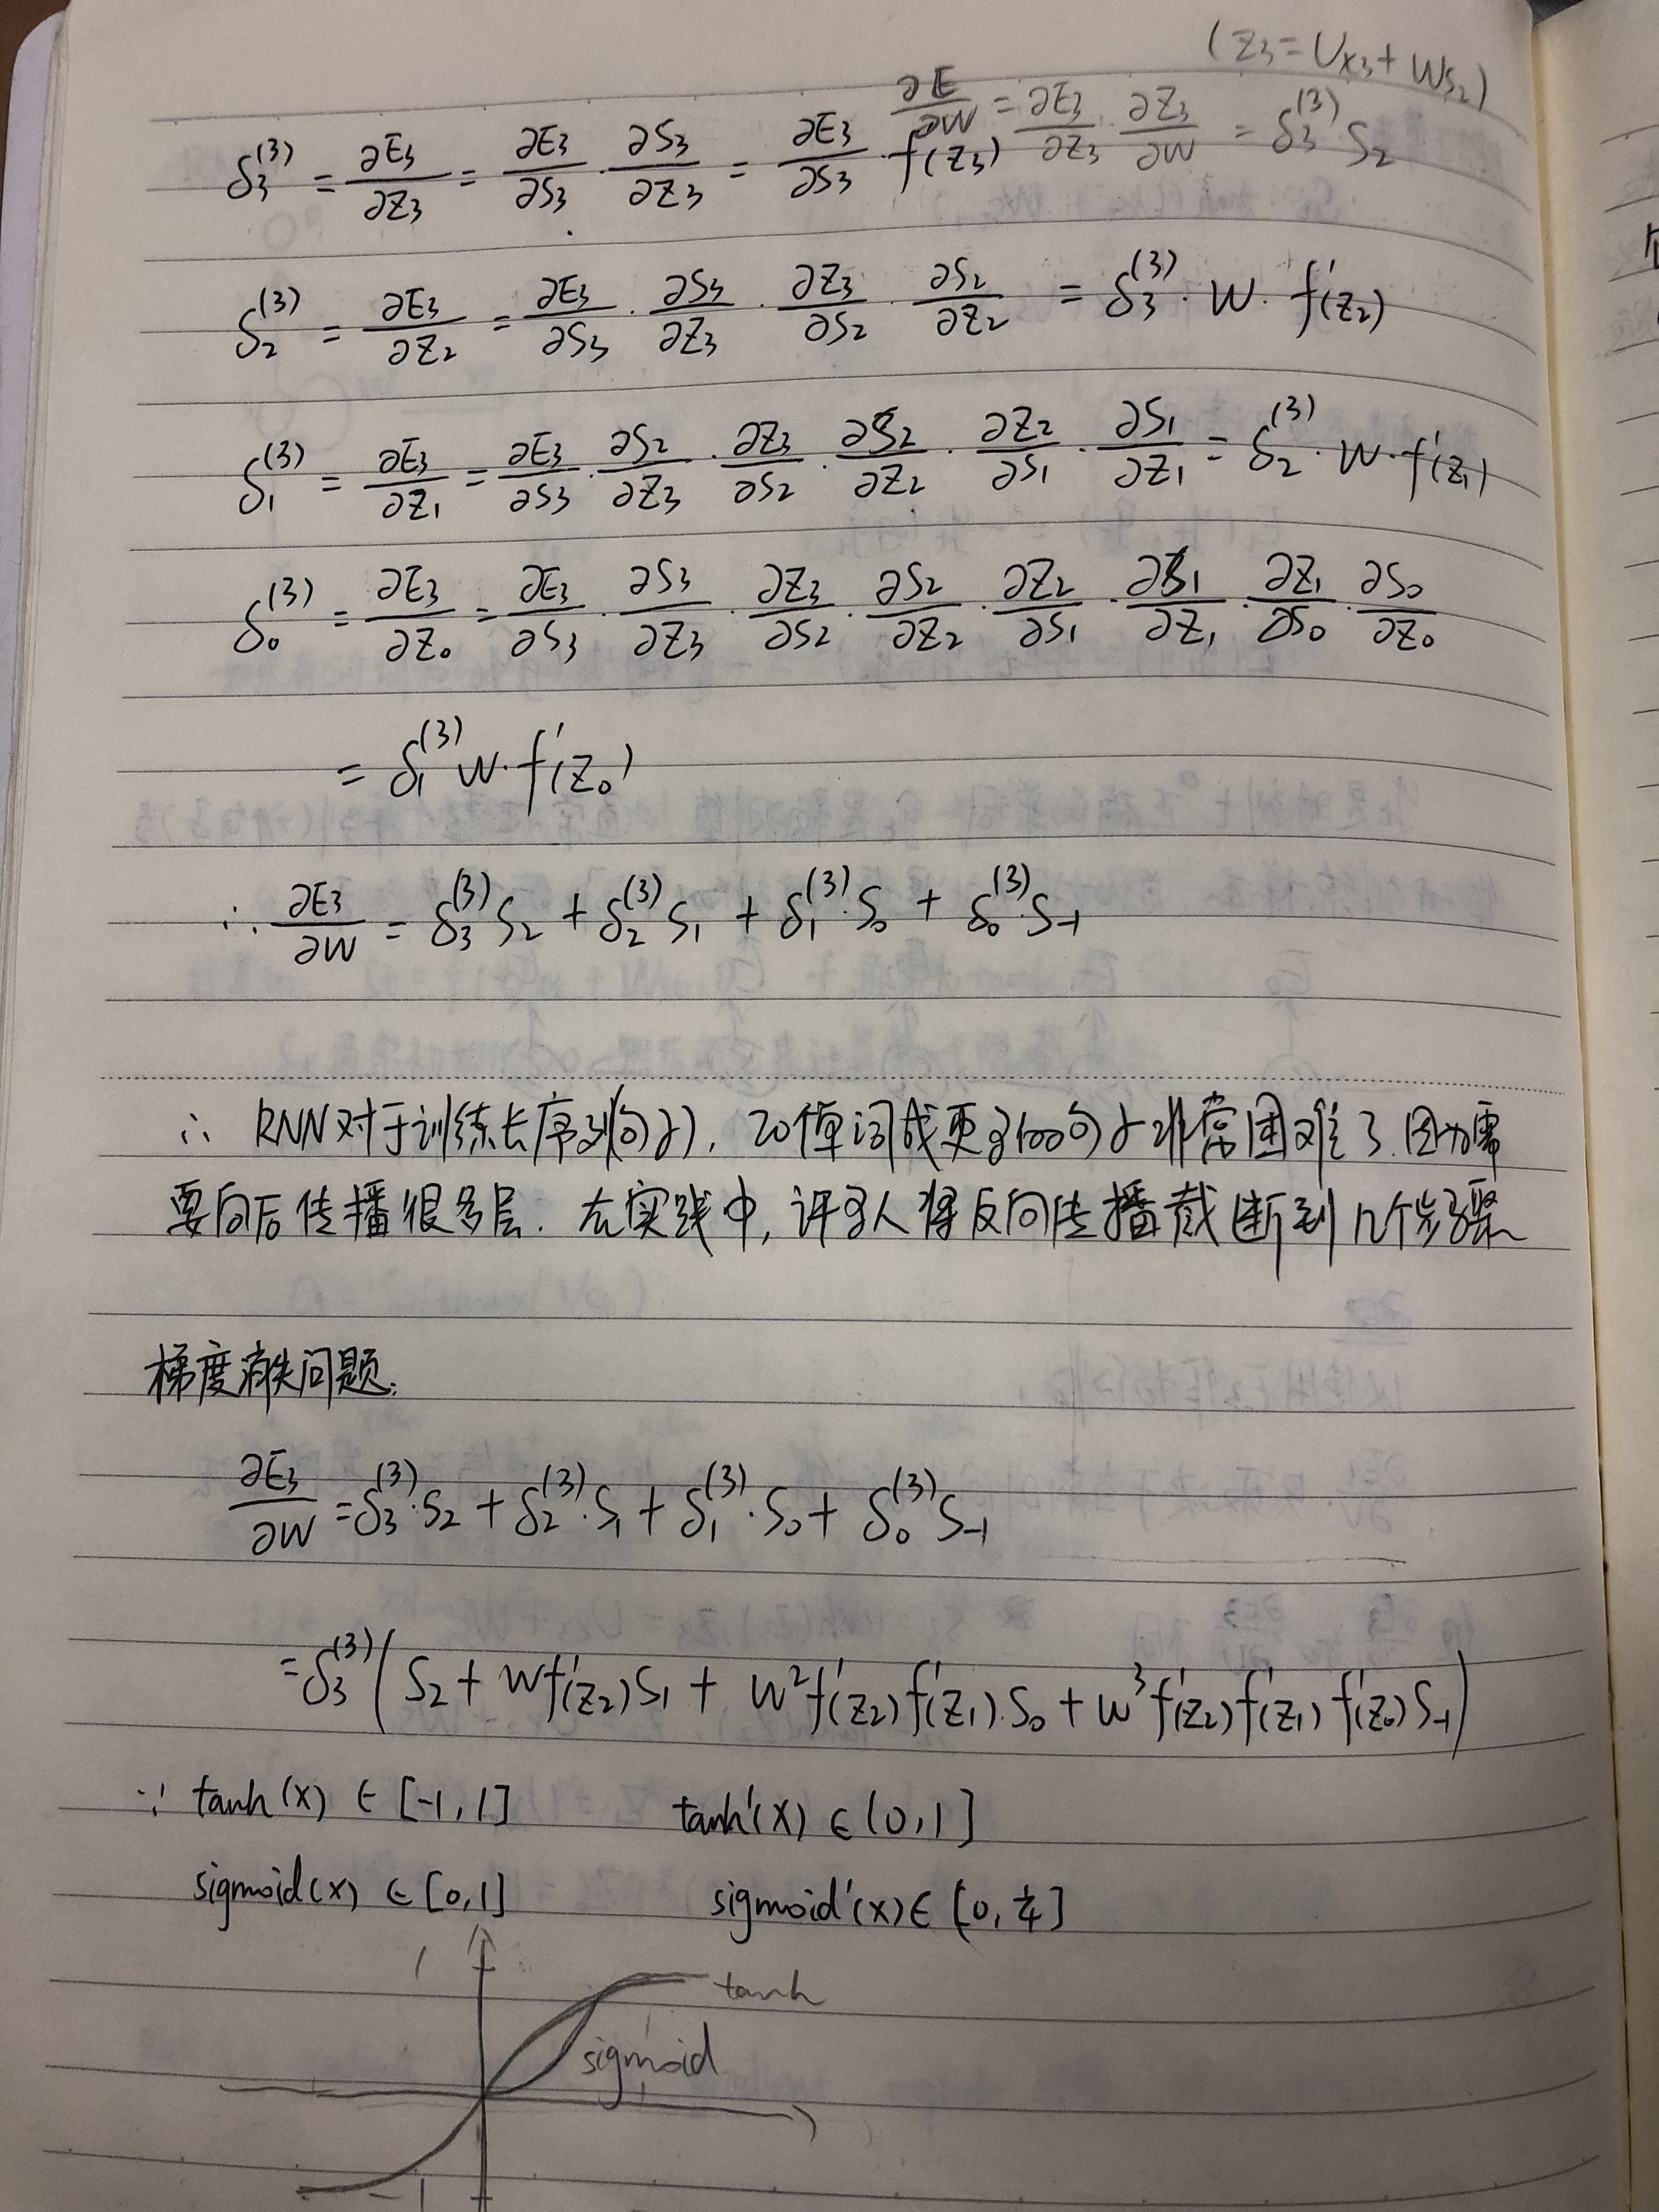 (z₃ = Ux₃ + Ws₂)
∂E/∂W = ∂E₃/∂z₃ · ∂z₃/∂W = δ₃⁽³⁾ S₂
δ₃⁽³⁾ = ∂E₃/∂z₃ = ∂E₃/∂S₃ · ∂S₃/∂z₃ = ∂E₃/∂S₃ · f'(z₃)
δ₂⁽³⁾ = ∂E₃/∂z₂ = ∂E₃/∂S₃ · ∂S₃/∂z₃ · ∂z₃/∂S₂ · ∂S₂/∂z₂ = δ₃⁽³⁾ · W · f'(z₂)
δ₁⁽³⁾ = ∂E₃/∂z₁ = ∂E₃/∂S₃ · ∂S₂/∂z₃ · ∂z₃/∂S₂ · ∂S₂/∂z₂ · ∂z₂/∂S₁ · ∂S₁/∂z₁ = δ₂⁽³⁾ · W · f'(z₁)
δ₀⁽³⁾ = ∂E₃/∂z₀ = ∂E₃/∂S₃ · ∂S₃/∂z₃ · ∂z₃/∂S₂ · ∂S₂/∂z₂ · ∂z₂/∂S₁ · ∂S₁/∂z₁ · ∂z₁/∂S₀ · ∂S₀/∂z₀
= δ₁⁽³⁾ W · f'(z₀)
∴ ∂E₃/∂W = δ₃⁽³⁾ S₂ + δ₂⁽³⁾ S₁ + δ₁⁽³⁾ · S₀ + δ₀⁽³⁾ · S₋₁
∴ RNN对于训练长序列(句子), 20单词或更多(100句子非常困难了.因为需
要向后传播很多层. 在实践中, 许多人将反向传播截断到几个步骤
梯度消失问题:
∂E₃/∂W = δ₃⁽³⁾ · S₂ + δ₂⁽³⁾ · S₁ + δ₁⁽³⁾ · S₀ + δ₀⁽³⁾ S₋₁
= δ₃⁽³⁾ ( S₂ + W f'(z₂) S₁ + W² f'(z₂) f'(z₁) · S₀ + W³ f'(z₂) f'(z₁) f'(z₀) S₋₁ )
∵ tanh(x) ∈ [-1, 1] tanh'(x) ∈ (0, 1]
sigmoid(x) ∈ [0, 1] sigmoid'(x) ∈ [0, ¼]
1
tanh
sigmoid
-1